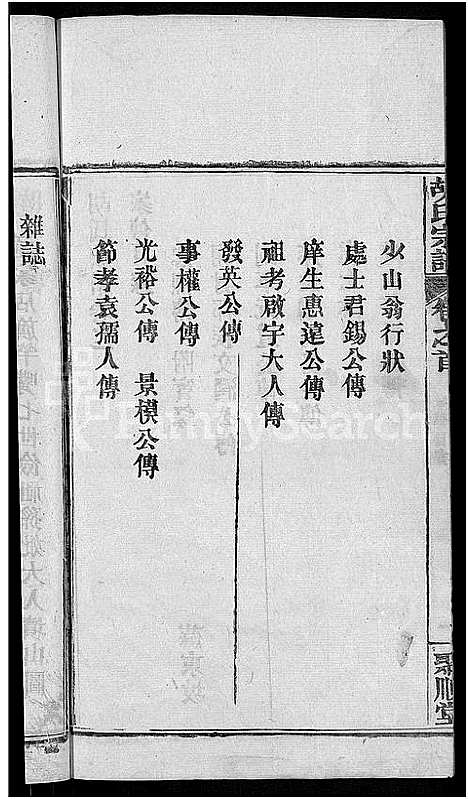 胡氏宗譜
卷之首
聚順堂
少山翁行狀
處士君錫公傳
庠生惠遠公傳
祖考啟宇大人傳
發英公傳
事權公傳
光裕公傳 景模公傳
節孝袁孺人傳
雜誌
FamilySearch